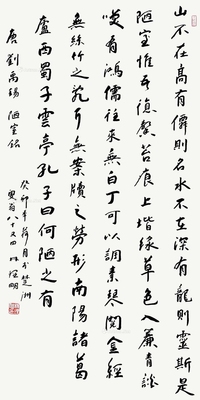 山不在高有僊則名水不在深有龍則靈斯是
陋室惟吾德馨苔痕上堦綠草色入簾青談
笑有鴻儒往來無白丁可以調素琴閱金經
無絲竹之亂耳無案牘之勞形南陽諸葛
廬西蜀子雲亭孔子曰何陋之有
唐劉禹錫陋室銘
癸卯年荷月於
八十又四